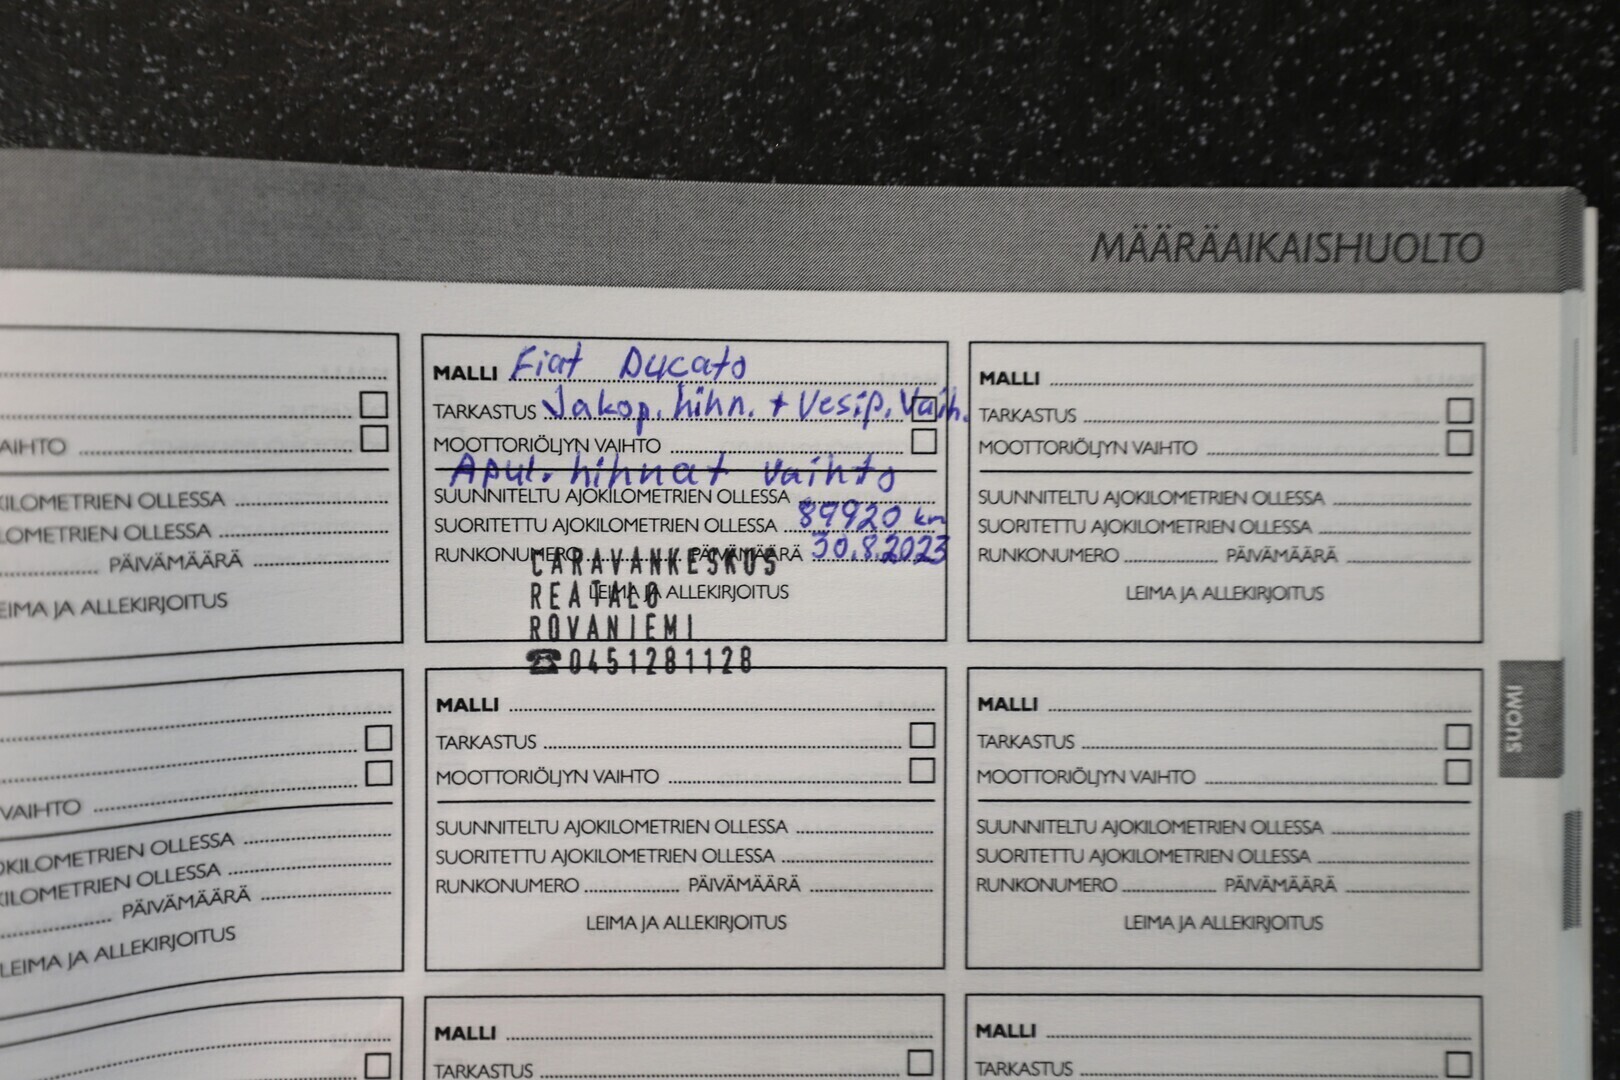 MÄÄRÄAIKAISHUOLTO
AIHTO
KILOMETRIEN OLLESSA
LOMETRIEN OLLESSA
PÄIVÄMÄÄRÄ
EIMA JA ALLEKIRJOITUS
MALLI Fiat Ducato
TARKASTUS Jakop. hihn. + Vesip. Vaih.
MOOTTORIÖLJYN VAIHTO
Apul. hihnat vaihto
SUUNNITELTU AJOKILOMETRIEN OLLESSA
SUORITETTU AJOKILOMETRIEN OLLESSA 89920 km
RUNKONUMERO PÄIVÄMÄÄRÄ 30.8.2023
CARAVANKESKUS
LEIMA JA ALLEKIRJOITUS
REATALO
ROVANIEMI
☎0451281128
MALLI
TARKASTUS
MOOTTORIÖLJYN VAIHTO
SUUNNITELTU AJOKILOMETRIEN OLLESSA
SUORITETTU AJOKILOMETRIEN OLLESSA
RUNKONUMERO PÄIVÄMÄÄRÄ
LEIMA JA ALLEKIRJOITUS
SUOMI
VAIHTO
OKILOMETRIEN OLLESSA
KILOMETRIEN OLLESSA
PÄIVÄMÄÄRÄ
LEIMA JA ALLEKIRJOITUS
MALLI
TARKASTUS
MOOTTORIÖLJYN VAIHTO
SUUNNITELTU AJOKILOMETRIEN OLLESSA
SUORITETTU AJOKILOMETRIEN OLLESSA
RUNKONUMERO PÄIVÄMÄÄRÄ
LEIMA JA ALLEKIRJOITUS
MALLI
TARKASTUS
MOOTTORIÖLJYN VAIHTO
SUUNNITELTU AJOKILOMETRIEN OLLESSA
SUORITETTU AJOKILOMETRIEN OLLESSA
RUNKONUMERO PÄIVÄMÄÄRÄ
LEIMA JA ALLEKIRJOITUS
MALLI
TARKASTUS
MALLI
TARKASTUS